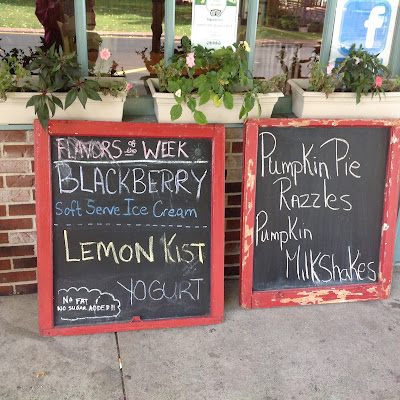 FLAVORS of the WEEK
BLACKBERRY
Soft Serve Ice Cream
LEMON KIST
YOGURT
NO FAT /
NO SUGAR ADDED!!
Pumpkin Pie
Razzles
Pumpkin
Milkshakes
f